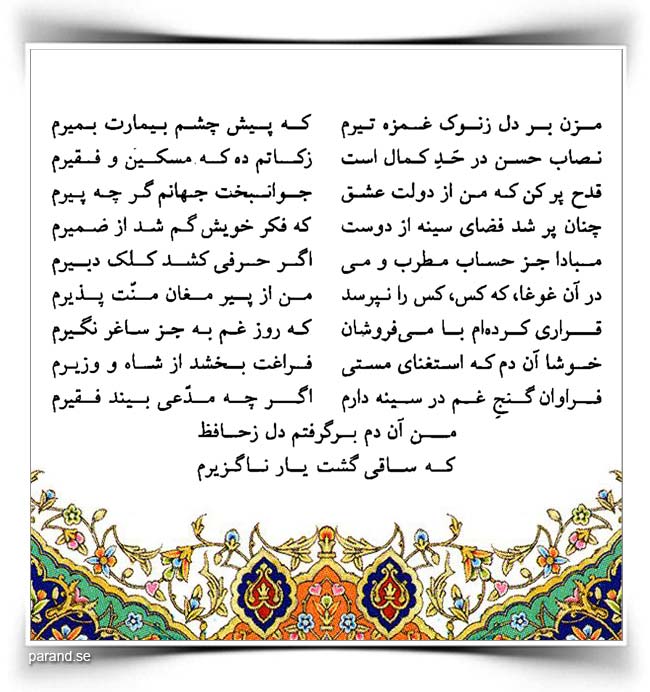 مزن بر دل زنوک غمزه تیرم    که پیش چشم بیمارت بمیرم
نصاب حسن در حَدِ کمال است    زکاتم ده که مسکین و فقیرم
قدح پر کن که من از دولت عشق    جوانبخت جهانم گر چه پیرم
چنان پر شد فضای سینه از دوست    که فکر خویش گم شد از ضمیرم
مبادا جز حساب مطرب و می    اگر حرفی کشد کلک دبیرم
در آن غوغا، که کس، کس را نپرسد    من از پیر مغان منّت پذیرم
قراری کرده‌ام با می‌فروشان    که روز غم به جز ساغر نگیرم
خوشا آن دم که استغنای مستی    فراغت بخشد از شاه و وزیرم
فراوان گنجِ غم در سینه دارم    اگر چه مدّعی بیند فقیرم
من آن دم برگرفتم دل زحافظ
که ساقی گشت یار ناگزیرم
parand.se